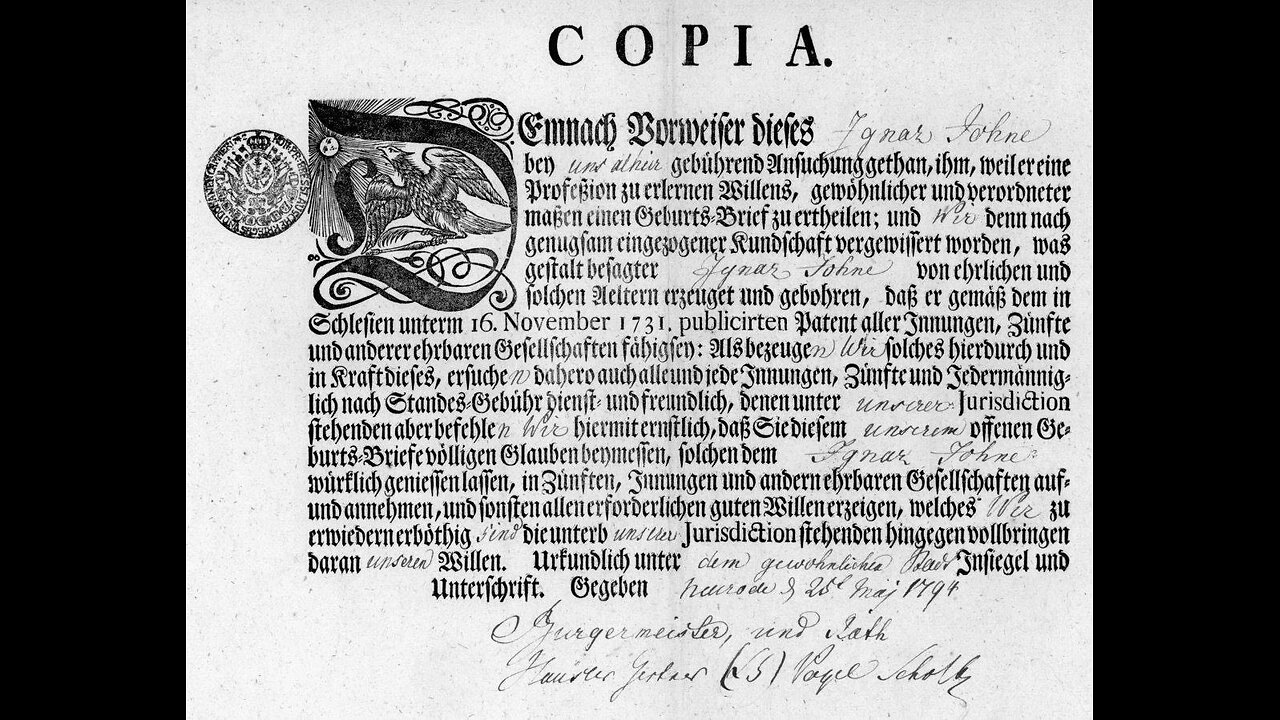 COPIA.
DEmnach Vorweiser dieses Ignaz Johne
bey uns alhier gebührend Ansuchung gethan, ihm, weil er eine
Profeßion zu erlernen Willens, gewöhnlicher und verordneter
maßen einen Geburts-Brief zu ertheilen; und Wir denn nach
genugsam eingezogener Kundschaft vergewissert worden, was
gestalt besagter Ignaz Johne von ehrlichen und
solchen Aeltern erzeuget und gebohren, daß er gemäß dem in
Schlesien unterm 16. November 1731. publicirten Patent aller Innungen, Zünfte
und anderer ehrbaren Gesellschaften fähig sey: Als bezeugen Wir solches hierdurch und
in Kraft dieses, ersuchen dahero auch alle und jede Innungen, Zünfte und Jedermännig-
lich nach Standes-Gebühr dienst- und freundlich, denen unter unserer Jurisdiction
stehenden aber befehlen Wir hiermit ernstlich, daß Sie diesem unserem offenen Ge-
burts-Briefe völligen Glauben beymessen, solchen dem Ignaz Johne
würklich geniessen lassen, in Zünften, Innungen und andern ehrbaren Gesellschaften auf-
und annehmen, und sonsten allen erforderlichen guten Willen erzeigen, welches Wir zu
erwiedern erböthig sind die unterb unserer Jurisdiction stehenden hingegen vollbringen
daran unseren Willen. Urkundlich unter dem gewöhnlichen Insiegel und
Unterschrift. Gegeben Neurode d 25t Maj 1794
Burgermeister, und Rath
(LS) Vogel Scholtz